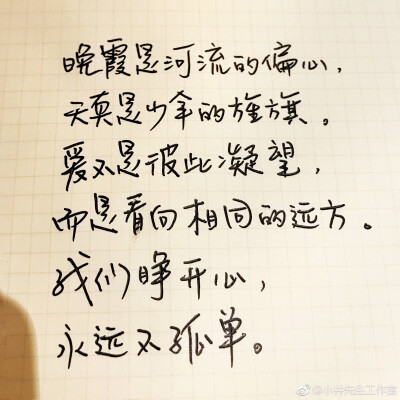 晚霞是河流的偏心，
天真是少拿的旌旗。
爱不是彼此凝望，
而是看向相同的远方。
我们睁开心，
永远不孤单。
@小井先生工作室